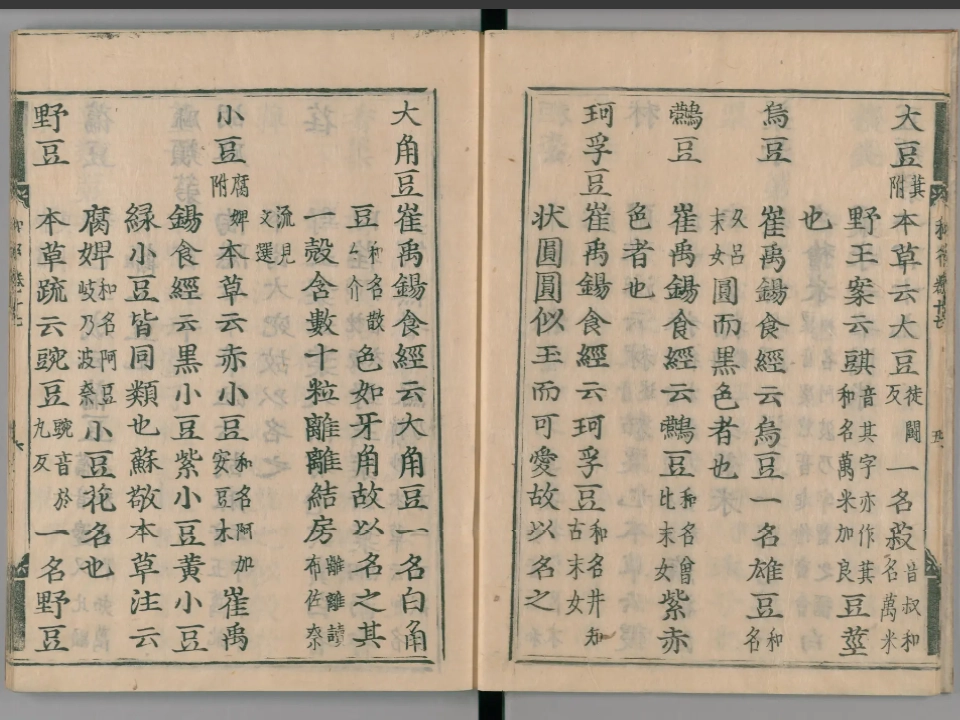 大豆 萁附 本草云大豆 徒闘反 一名菽 音叔和名萬米
野王案云䕮 音其字亦作萁和名萬米加良 豆莖
也
烏豆 崔禹錫食經云烏豆一名雄豆 和名
久呂末女 圓而黒色者也
䴏豆 崔禹錫食經云䴏豆 和名曾比末女 紫赤
色者也
珂孚豆 崔禹錫食經云珂孚豆 和名井知古末女
状圓圓似玉而可愛故以名之
大角豆 崔禹錫食經云大角豆一名白角
豆 和名散々介 色如牙角故以名之其
一殻含數十粒離離結房 離離讀有佐奈
流見文選
小豆 腐婢附 本草云赤小豆 和名阿加安豆木 崔禹
錫食經云黒小豆紫小豆黄小豆
緑小豆皆同類也蘇敬本草注云
腐婢 和名阿豆岐乃波奈 小豆花名也
野豆 本草疏云豌豆 豌音於丸反 一名野豆